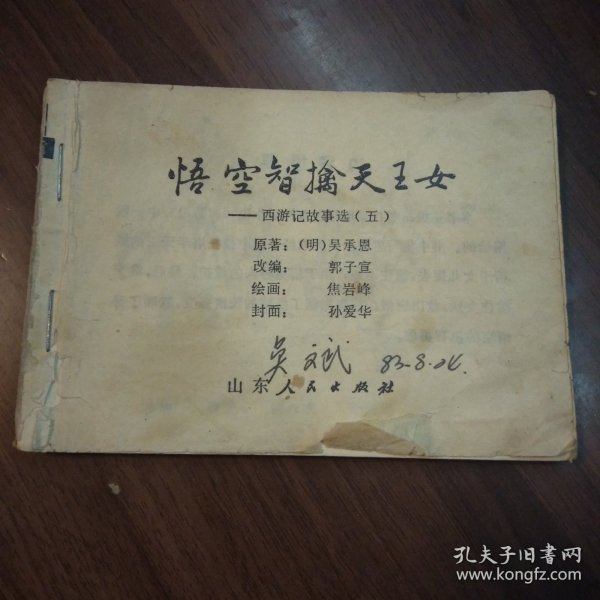 悟空智擒天王女
——西游记故事选(五)
原著：(明)吴承恩
改编：郭子宣
绘画：焦岩峰
封面：孙爱华
吴斌 83.8.04.
山东人民出版社
孔夫子旧书网
www.kongfz.com